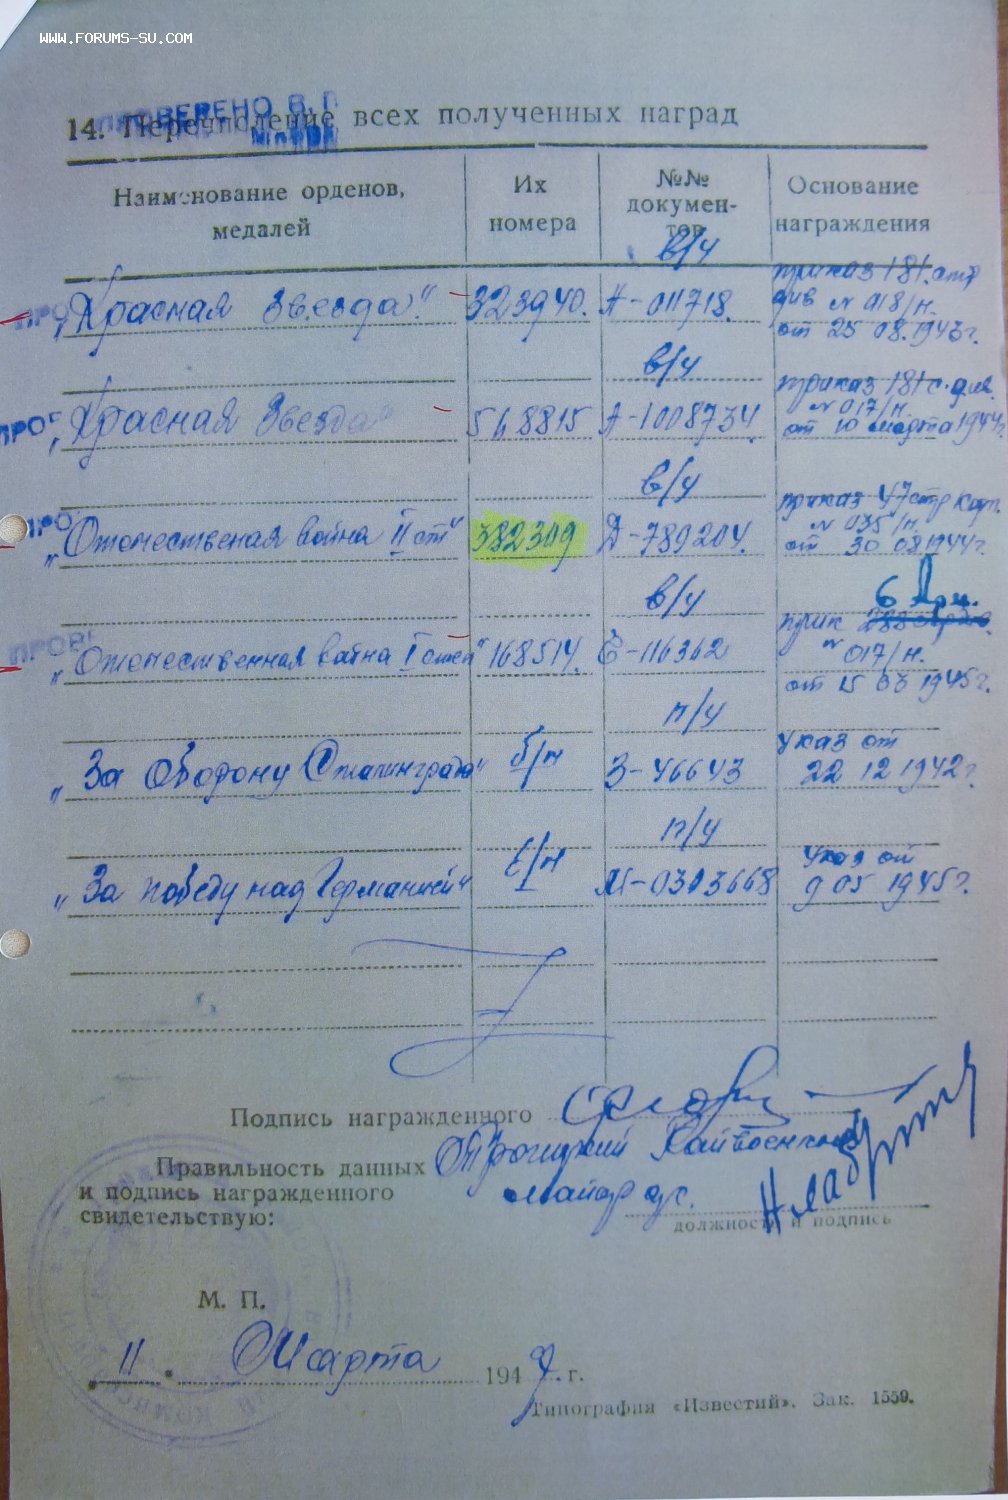 WWW.FORUMS-SU.COM
ПРОВЕРЕНО В.
14. Перечисление всех полученных наград
Наименование орденов, медалей
Их номера
№№ документов
Основание награждения
в/ч
приказ 181 стр
"Красная Звезда" 323940. А-011718. див № 018/н.
от 25 08. 1943 г.
в/ч
приказ 181 с. див.
№ 017/н.
"Красная Звезда" 568815 А-1008734. от 10 марта 1944 г.
в/ч
приказ 47 стр кор.
№ 035/н.
"Отечественая война II ст" 382309 Д-789204. от 30 08 1944 г.
6 Арм.
в/ч
прик
№ 017/н.
"Отечественная война I степ" 168514. Е-116362
от 15 03 1945 г.
п/у
Указ от
"За оборону Сталинграда" б/н З-46643 22 12 1942 г.
п/у
Указ от
"За победу над Германией" б/н М-0303668 9 05 1945 г.
Подпись награжденного
Правильность данных
и подпись награжденного
свидетельствую:
Райвоенком
майор
должность и подпись
М. П.
11. Марта 1947. г.
Типография «Известий». Зак. 1559.